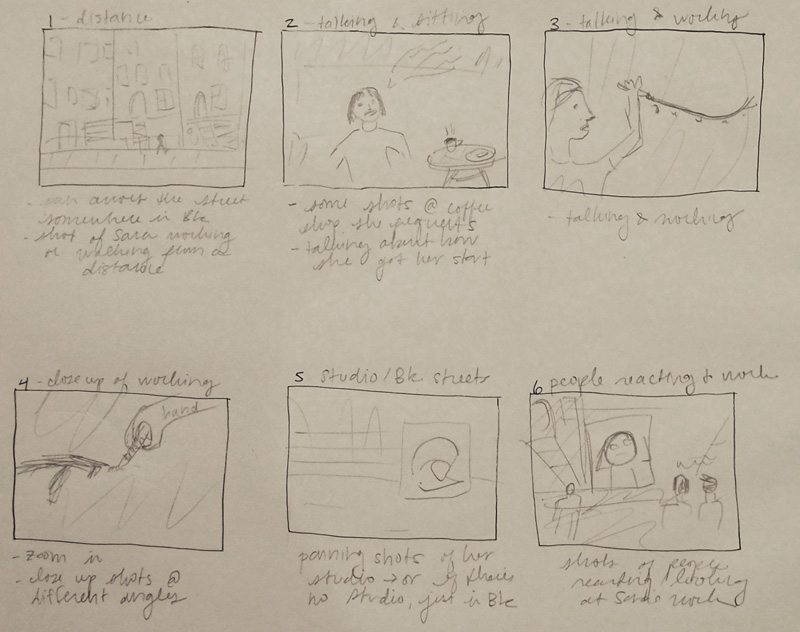 1 - distance
across the street
somewhere in Bk
- shot of Sara working
or walking from a
distance
2 - talking & sitting
- some shots @ coffee
shop she frequents
- talking about how
she got her start
3 - talking & working
- talking & working
4 - close up of working
hand
- zoom in
- close up shots @
different angles
5 Studio/Bk streets
panning shots of her
studio → or if theres
no studio, just in Bk
6 people reacting to work
shots of people
reacting/looking
at Sara's work